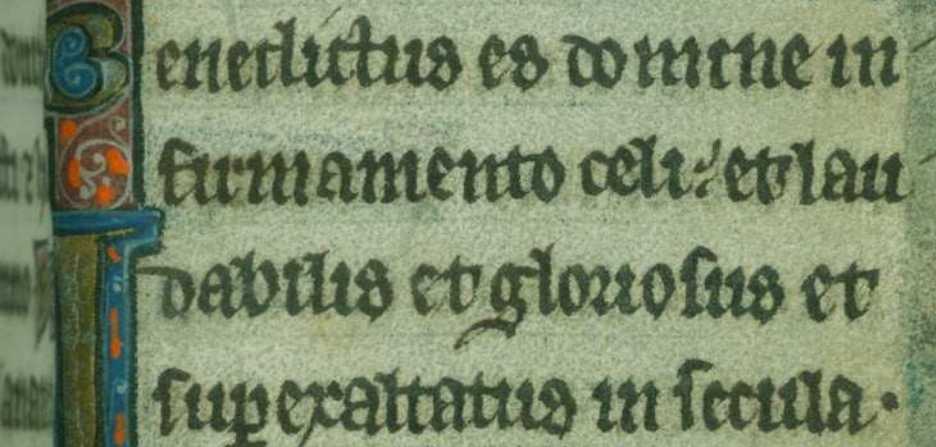 Benedictus es domine in
firmamento celi: et lau
dabilis et gloriosus et
superaltatus in secula.